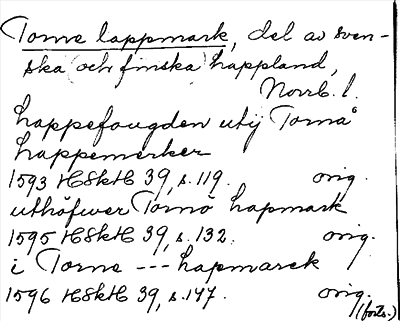 Torne lappmark, del av sven-
ska (och finska) Lappland,
Norrb. l.
Lappefougden utij Tornå
Lappemerker
1593 HSkH 39, s. 119. orig.
uthöfwer Tornö Lapmark
1595 HSkH 39, s. 132. orig.
i Torne --- Lapmarck
1596 HSkH 39, s. 147. orig.
(forts.)